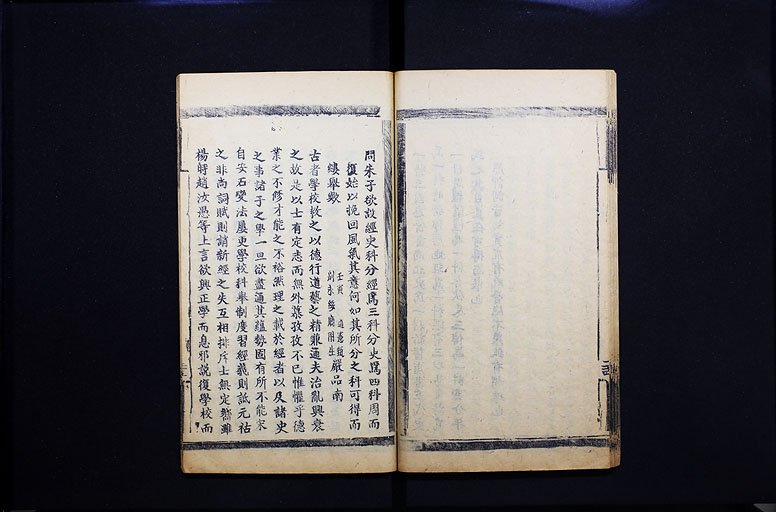 問朱子欲設經史科分經爲三科分史爲四科周而
復始以挽回風氣其意何如其所分之科可得而
縷舉歟
嚴品南
古者學校教之以德行道藝之精兼通夫治亂興衰
之故是以士有定志而無外慕孜孜不已惟懼乎德
業之不修才能之不裕然理之載於經者以及諸史
之事諸子之學一旦欲盡通其蘊勢固有所不能宋
自安石變法屢更學校科舉制度習經義則詆元祐
之非尚詞賦則誚新經之失互相排斥士無定嚮雖
楊時趙汝愚等上言欲興正學而息邪說復學校而